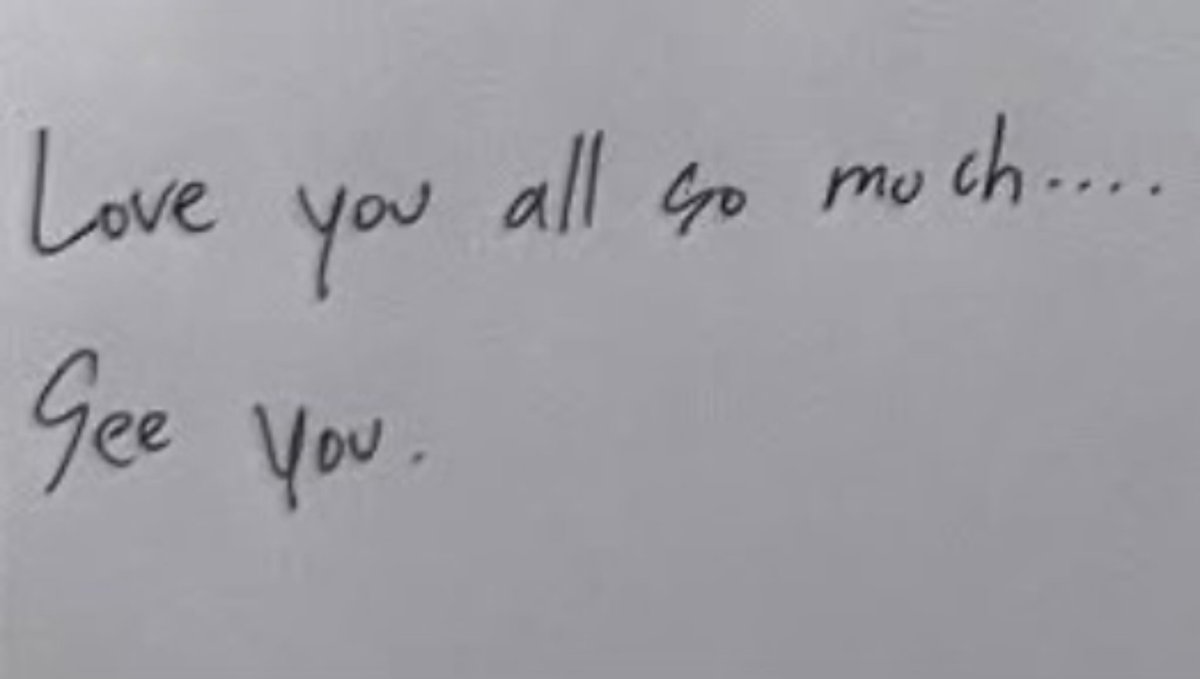 Love you all so much.....
See you.